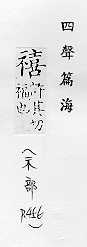 四聲篇海
禧
許其切
福也
(示部
P.416)